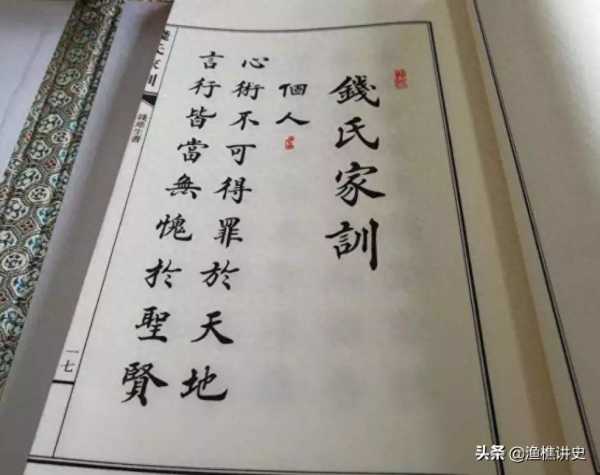 錢氏家訓
個人
心術不可得罪於天地
言行皆當無愧於聖賢
錢氏家訓
一七
头条 @渔樵讲史